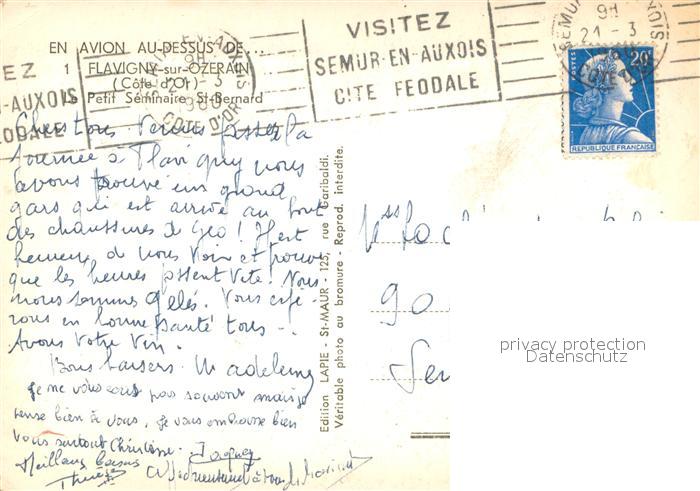 VISITEZ
SEMUR-EN-AUXOIS
CITE FEODALE
EZ
-AUXOIS
ODALE
9H
21 - 3
COTE D'OR
20F
POSTES
REPUBLIQUE FRANÇAISE
EN AVION AU-DESSUS DE...
1 FLAVIGNY-sur-OZERAIN
(Côte d'Or)
Le Petit Séminaire St-Bernard
Chers tous Venus passer la
journée à Flavigny nous
avons trouvé un grand
gars qui est arrivé au bout
des chaussures de Géo! Il est
heureux de nous voir et trouve
que les heures passent vite. Nous
nous sommes gelés. Vous espé-
rons en bonne santé tous -
Avons votre vin.
Bons baisers. Madeleine
Je ne vous écris pas souvent mais je
pense bien à vous, je vous embrasse bien
vous surtout Christiane. Jacques
Meilleurs baisers
Thérèse
Edition LAPIE - St-MAUR - 125, rue Garibaldi.
Véritable photo au bromure - Reprod. interdite.
90
privacy protection
Datenschutz